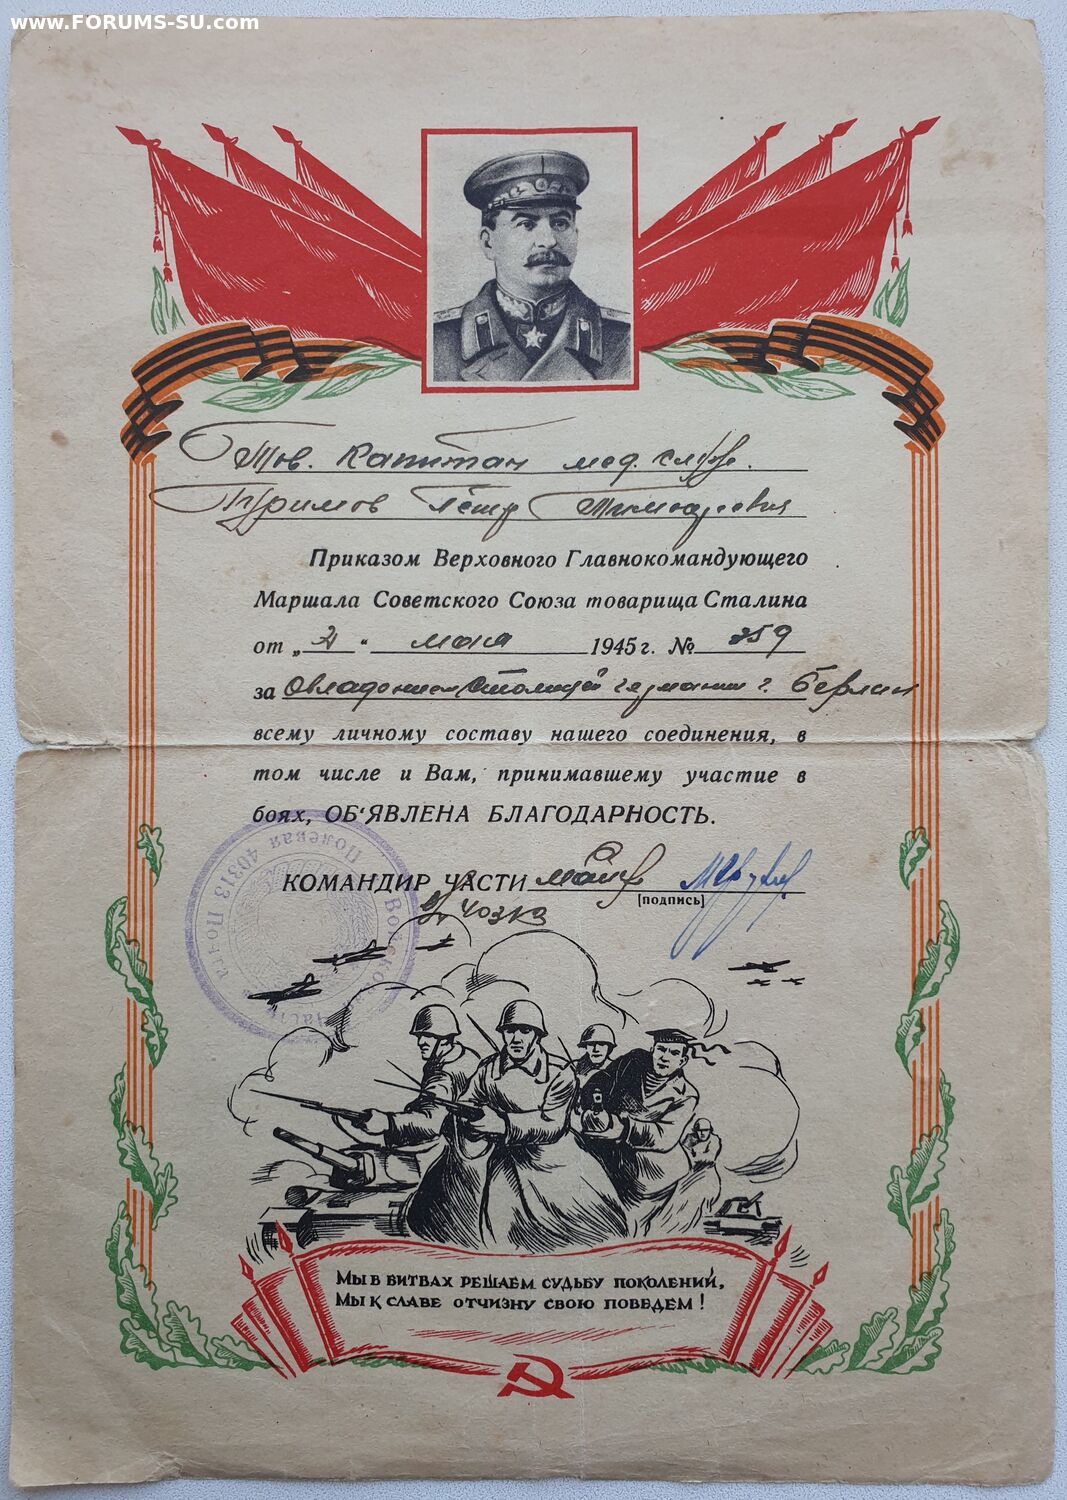 www.FORUMS-SU.com
Тов. Капитан мед. служ.
Пётр
Приказом Верховного Главнокомандующего
Маршала Советского Союза товарища Сталина
от „2“ мая 1945 г. № 359
за Овладение Столицей Германии г. Берлин
всему личному составу нашего соединения, в
том числе и Вам, принимавшему участие в
боях, ОБ'ЯВЛЕНА БЛАГОДАРНОСТЬ.
КОМАНДИР ЧАСТИ майор
[подпись]
Полевая 40313 Почта
Войсковая Часть
МЫ В БИТВАХ РЕШАЕМ СУДЬБУ ПОКОЛЕНИЙ,
МЫ К СЛАВЕ ОТЧИЗНУ СВОЮ ПОВЕДЕМ!